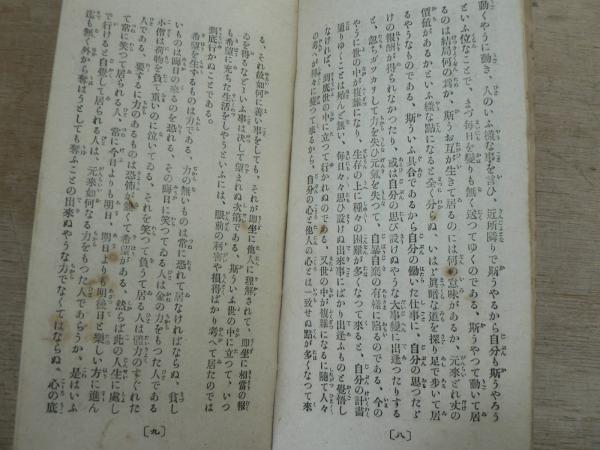 動くやうに動き、人のいふ樣な事を言ひ、近所隣りで斯うやるから自分も斯うやろう
といふ位なことで、まづ每日を變りも無く送つてゆくのである、斯うやつて動いて居
るのは結局何の爲か、斯うお互が生きて居るのには何の意味があるか、元來どれ丈の
價値があるかといふ樣な點になると全く分らぬ、いはゞ眞暗な道を探り足で步いて居
るやうなものである、斯ういふ具合であるから自分の働いた仕事に、自分の思つたゞ
けの報酬が得られなかつたり、或は自分の思ひ設けぬやうな大事變に出逢つたりする
と、忽ちガツカリして力を失ひ元氣を失つて、自暴自棄の有樣に陷るのである、今の
やうに世の中が複雜になり、生存の上に種々の困難が多くなつて來ると、自分の計畫
通りゆくことは殆んど無い、每日々々思ひ設けぬ出來事にばかり出逢ふものと覺悟し
なければ、到底世の中に立つて行かれぬのである、又世の中が複雜になるに隨て人々
の考が樣々に變つて來るから、自分の心と他人の心とは一致せぬ點が多くなつて來
〔八〕
る、それ故如何に善い事をしても、それが卽坐に他人に理解されて、卽坐に相當の報
ゐを得るなどゝいふ事は決して望まれぬ次第である、斯ういふ世の中に立つて、いつ
も希望に充ちた生活をしやうといふには、眼前の利害や損得ばかり考へて居たのでは
到底行かぬことである。
希望を生ずるものは力である、力の無いものは常に恐れて居なければならぬ、貧し
いものは晦日の來るのを恐れる、その晦日に笑つてゐる人は金の力をもつた人である
小僧は荷物を負て重いのに泣いてゐる、それを笑つて負うて居る人は體力のすぐれた
人である、要するに力のあるものは恐怖が無くて希望がある、然らば此の人生に處し
て常に笑つて居られる人、常に今日よりも明日、明日よりも明後日と樂しい方に進ん
で行けると自覺して居られる人は、元來如何なる力をもつた人であらうか、是はいふ
迄も無く外から奪はうとしても奪ふことの出來ぬやうな力でなくてはならぬ、心の底
〔九〕